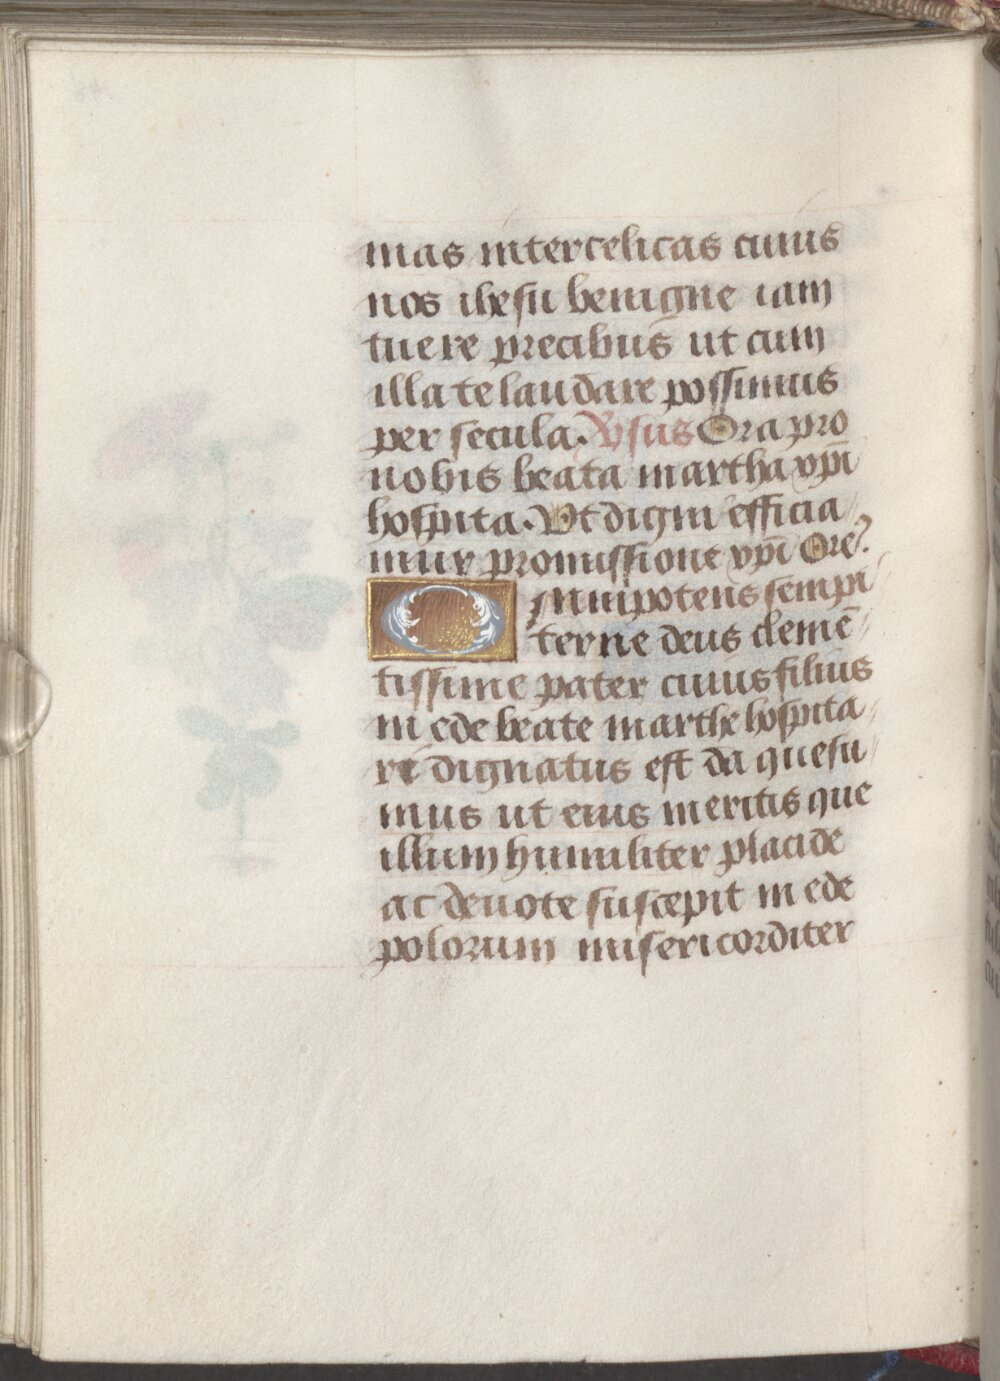 mas intercelicas cuius
nos ihesu benigne iam
tuere precibus ut cum
illa te laudare possimus
per secula. Vsus Ora pro
nobis beata martha xpi
hospita. Vt digni efficia
mur promissione xpi Ore.
Omnipotens sempi
terne deus clemē
tissime pater cuius filius
in ede beate marthe hospita
ri dignatus est da quesu
mus ut eius meritis que
illum humiliter placide
ac deuote suscepit in ede
polorum misericorditer